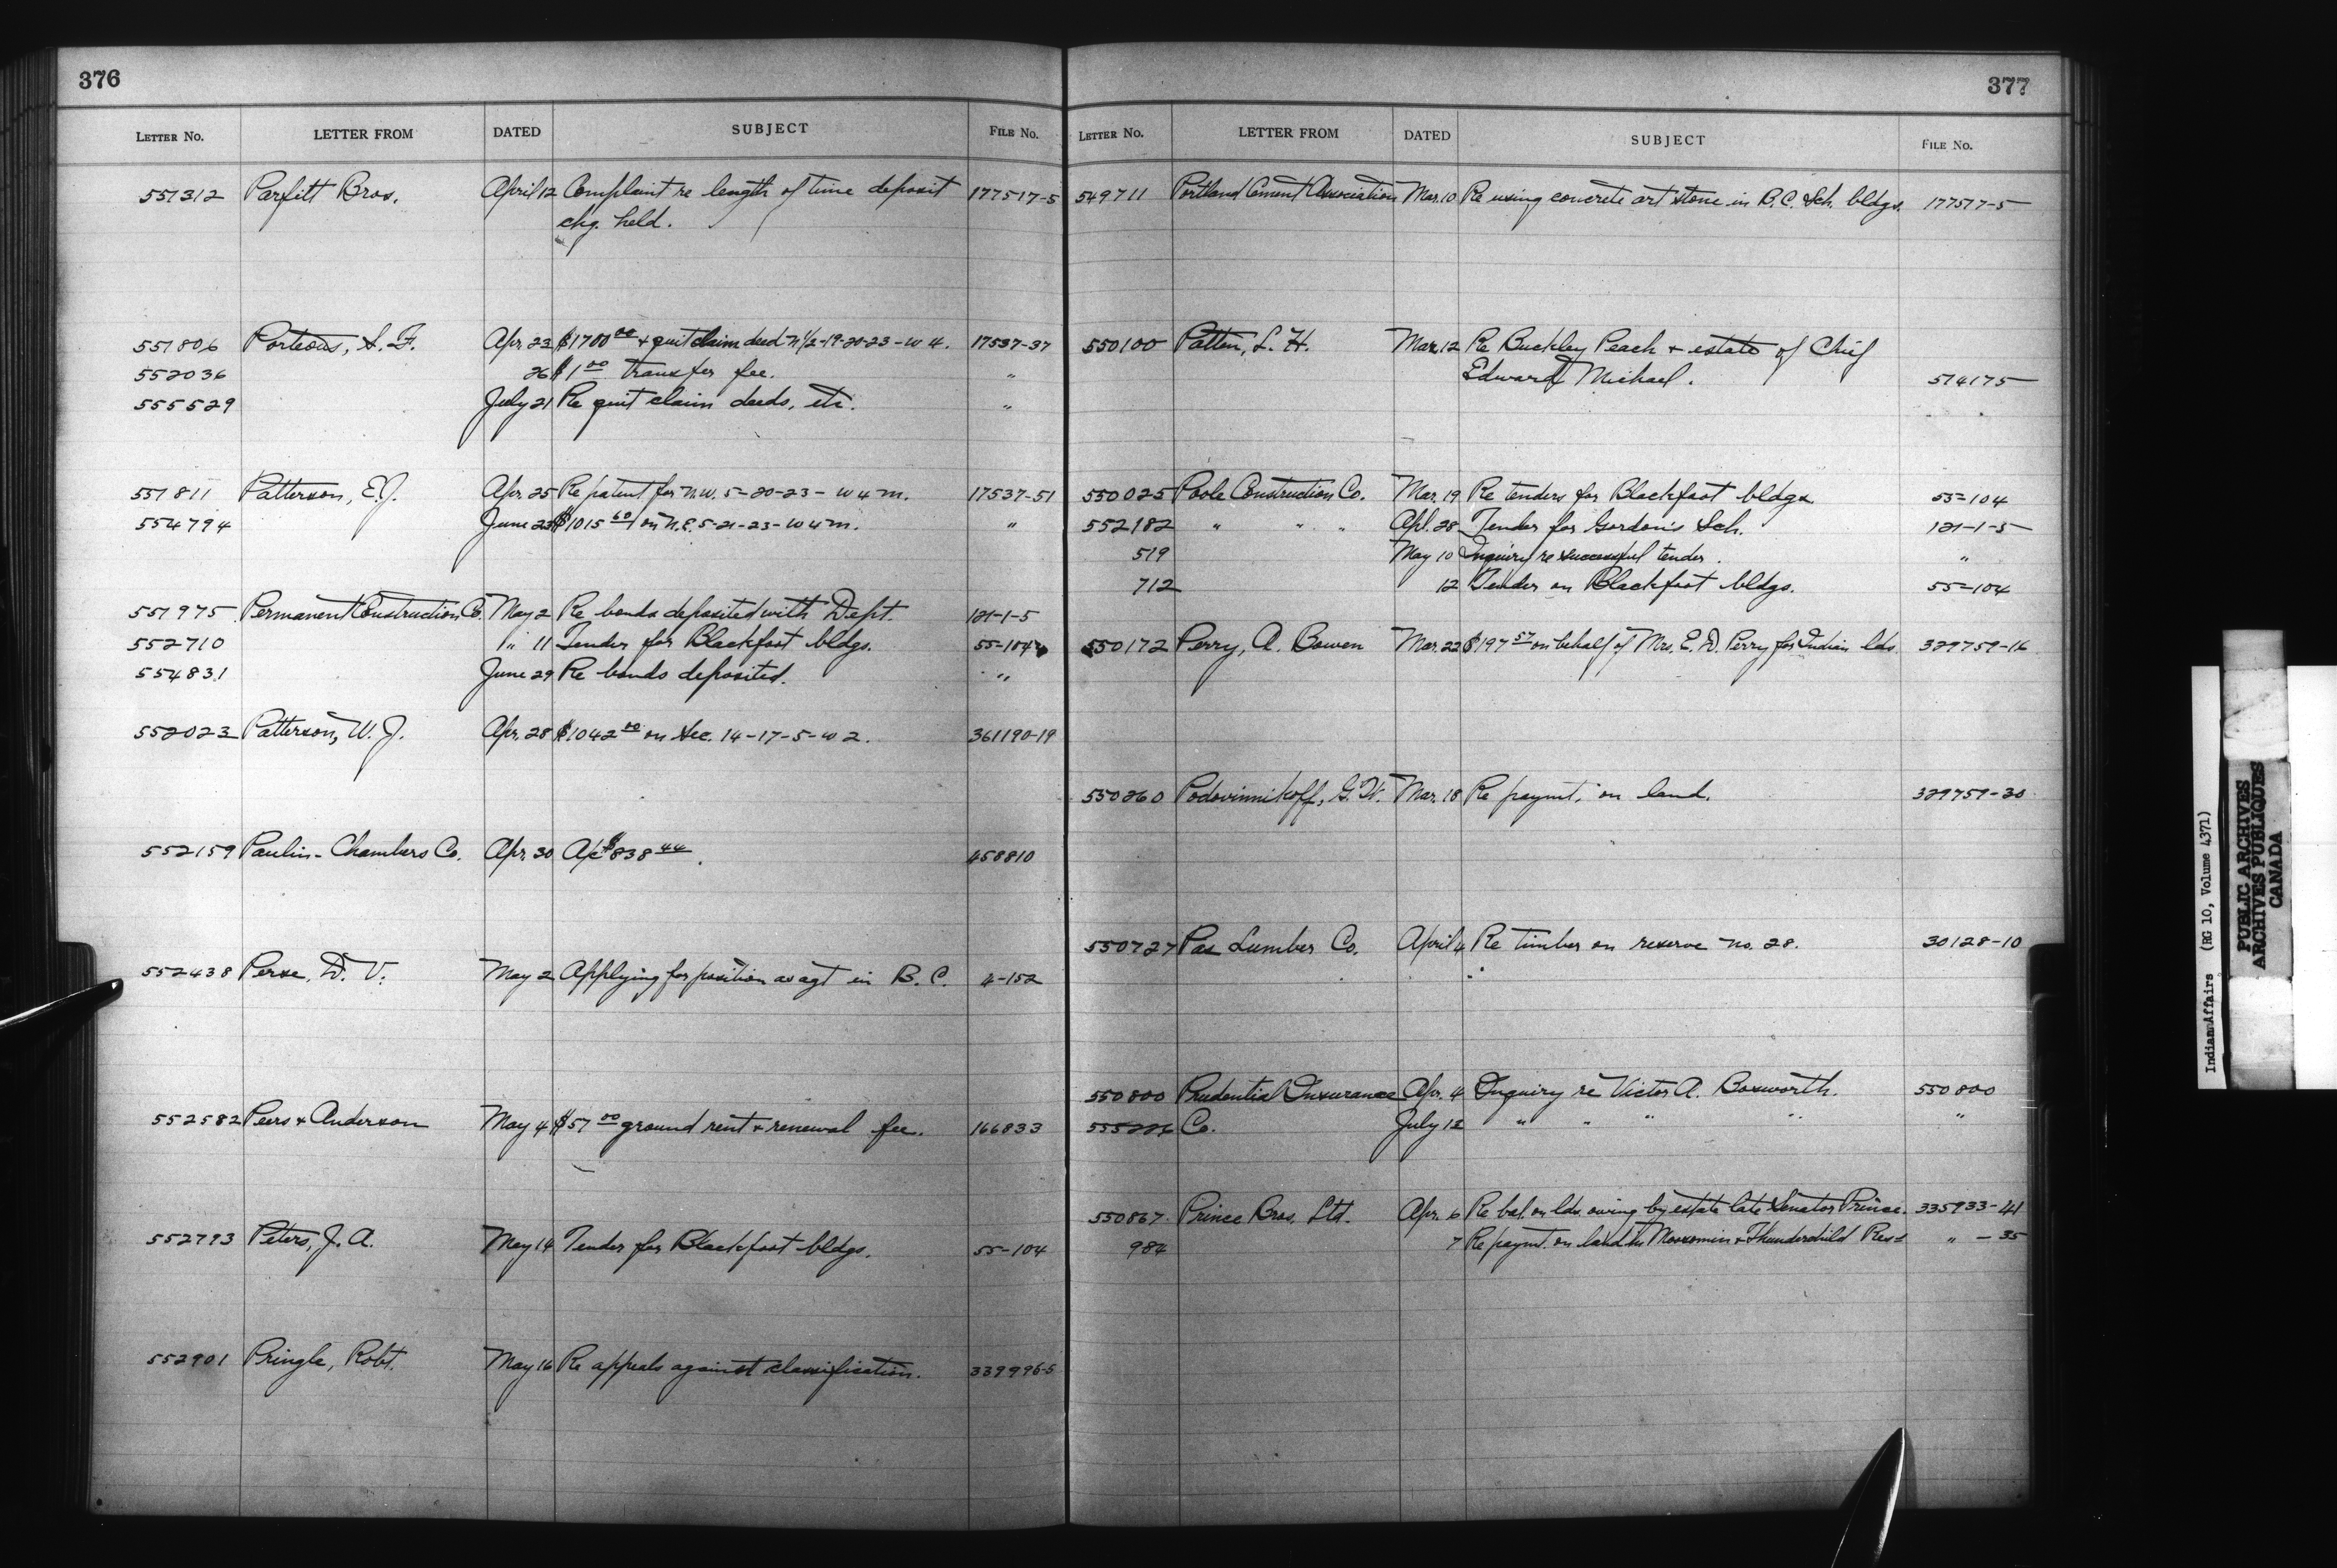 376
LETTER No. LETTER FROM DATED SUBJECT FILE No.
551312 Parfitt Bros. April 12 Complaint re length of time deposit 177517-5
chq. held.
551806 Porteous, S. F. Apr. 23 $1700 00 + quit claim deed N1/2-19-20-23-W 4. 17537-37
552036 26 $1 00 transfer fee. "
555529 July 21 Re quit claim deeds, etc. "
551811 Patterson, E.J. Apr. 25 Re patent for N.W. 5-20-23-W 4 M. 17537-51
554794 June 23 $1015 60 on N.E. 5-21-23-W 4 M. "
551975 Permanent Construction Co. May 2 Re bonds deposited with Dept. 121-1-5
552710 " 11 Tender for Blackfoot bldgs. 55-104
554831 June 29 Re bonds deposited. "
552023 Patterson, W. J. Apr. 28 $1042 00 on Sec. 14-17-5-W 2. 361190-19
552159 Paulin-Chambers Co. Apr. 30 A/c $838 44. 458810
552438 Perse, D. V. May 2 Applying for position as agt in B. C. 4-152
552582 Peers & Anderson May 4 $57 00 ground rent & renewal fee. 166833
552793 Peters, J. A. May 14 Tender for Blackfoot bldgs. 55-104
552901 Pringle, Robt. May 16 Re appeals against classification. 339996-5
377
LETTER No. LETTER FROM DATED SUBJECT FILE No.
549711 Portland Cement Association Mar. 10 Re using concrete art stone in B.C. Sch. bldgs. 177517-5
550100 Patten, L. H. Mar. 12 Re Buckley Peach & estate of Chief
Edward Michael. 514175
550025 Poole Construction Co. Mar. 19 Re tenders for Blackfoot bldgs 55-104
552182 " " " Apl. 28 Tender for Gordon's Sch. 121-1-5
519 May 10 Inquiry re successful tender. "
712 12 Tender on Blackfoot bldgs. 55-104
550172 Perry, A. Bowen Mar. 22 $197 57 on behalf of Mrs. E. D. Perry for Indian lds. 329759-16
550260 Podovinnikoff, G. W. Mar. 18 Re paymt. on land. 329759-30
550727 Pas Lumber Co. April 4 Re timber on reserve no. 28. 30128-10
550800 Prudential Insurance Apr. 4 Inquiry re Victor A. Bosworth. 550800
555226 Co. July 12 " " " " "
550867 Prince Bros. Ltd. Apr. 6 Re bal. on lds. owing by estate late Senator Prince. 335933-41
984 7 Re paymt. on land in Moosomin & Thunderchild Res. " -35
Indian Affairs (RG 10, Volume 4371)
PUBLIC ARCHIVES
ARCHIVES PUBLIQUES
CANADA